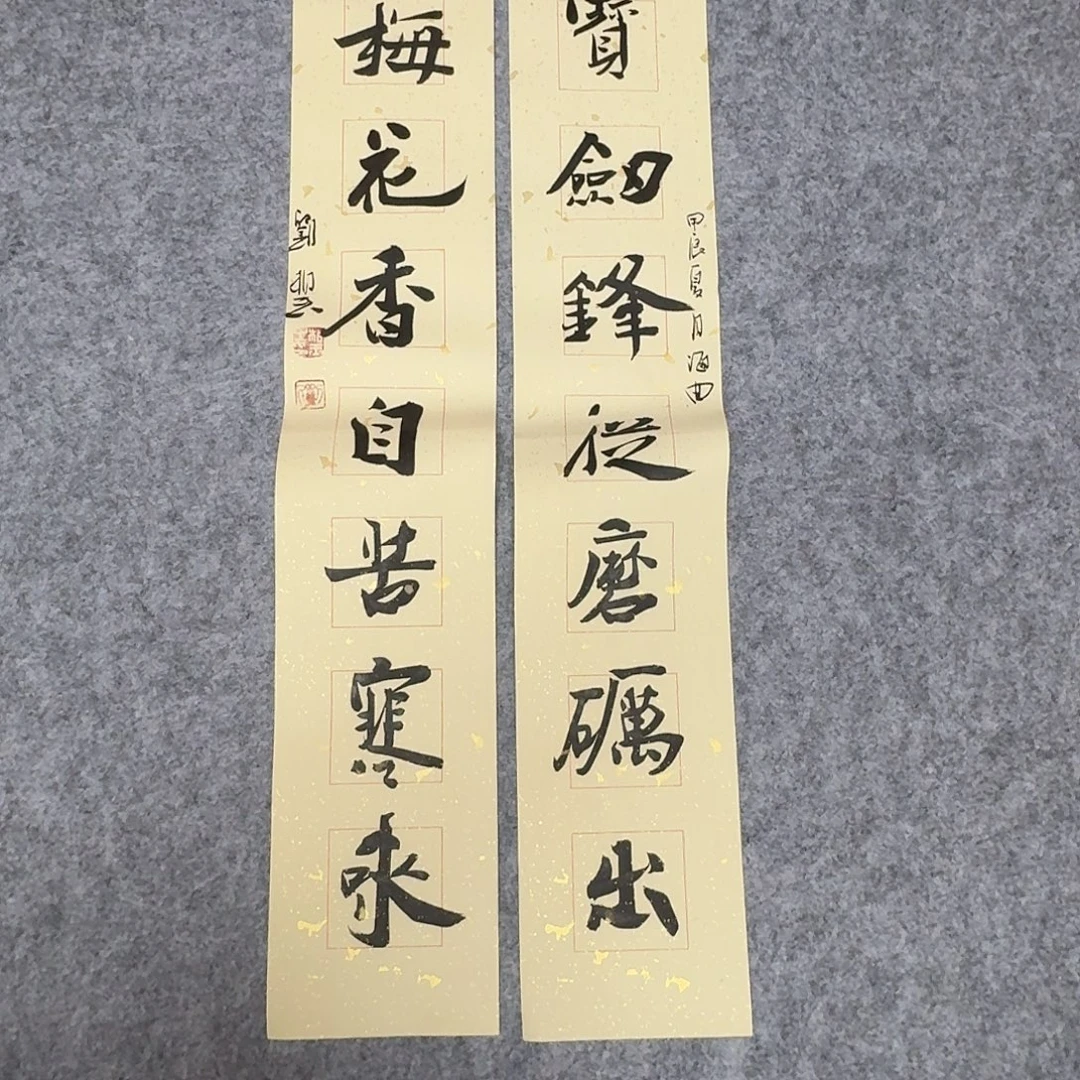 寶劍鋒從磨礪出
甲辰夏月海曲
梅花香自苦寒來
劉